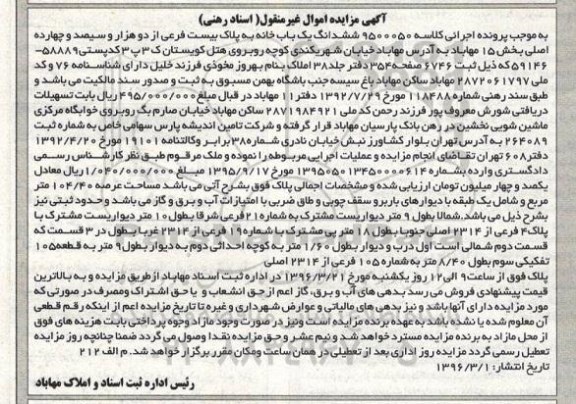 آگهی مزایده اموال غیرمنقول( اسناد رهنی)
به موجب پرونده اجرائی کلاسه ۹۵۰۰۰۵۰ ششدانگ یک باب خانه به پلاک بیست فرعی از دو هزار و سیصد و چهارده
اصلی بخش۱۵ مهاباد به آدرس مهاباد خیابان شهریکندی کوچه روبروی هتل کویستان ک۳ پ۳ کدپستی۵۸۸۸۹-
۵۹۱۴۶ که ذیل ثبت ۶۷۴۶ صفحه۳۵۴ دفتر جلد۳۸ املاک بنام بهروز مخوذی فرزند خلیل دارای شناسنامه ۷۶ و کد
ملی ۲۸۷۲۰۶۱۷۹۷ مهاباد ساکن مهاباد باغ سیسه جنب باشگاه بهمن مسبوق به ثبت و صدور سند مالکیت می باشد و
طبق سند رهنی شماره ۱۱۸۴۸۸ مورخ ۱۳۹۲/۷/۲۹ دفتر ۱۱ مهاباد در قبال مبلغ۴۹۵/۰۰۰/۰۰۰ ریال بابت تسهیلات
دریافتی شورش معروف پور فرزند رحمن کد ملی ۲۸۷۱۹۸۴۹۲۱ ساکن مهاباد خیابان صارم بگ روبروی خوابگاه مرکزی
ماشین شویی نخشین در رهن بانک پارسیان مهاباد قرار گرفته و شرکت تامین اندیشه پارس سهامی خاص به شماره ثبت
۲۶۴۰۸۹ به آدرس تهران بلوار کشاورز نبش خیابان نادری شماره۳۸ برابر وکالتنامه ۱۹۱۰۱ مورخ ۱۳۹۲/۴/۲۰
دفتر۶۰۸ تهران تقاضای انجام مزایده و عملیات اجرایی مربوطه را نموده و ملک مرقوم طبق نظر کارشناس رسمی
دادگستری وارده بشماره ۱۳۹۵۰۵۰۱۳۴۵۰۰۰۰۶۱۴ مورخ ۱۳۹۵/۹/۱۷ مبلغ ۱/۰۴۰/۰۰۰/۰۰۰ریال معادل
یکصد و چهار میلیون تومان ارزیابی شده و مشخصات اجمالی پلاک فوق بشرح آتی می باشد مساحت عرصه ۱۰۴/۴۰ متر
مربع و شامل یک طبقه با دیوارهای باربر و سقف چوبی و طاق ضربی با امتیازات آب و برق و گاز می باشد و حدود ثبتی نیز
بشرح ذیل می باشد.شمالا بطول ۹ متر دیواریست مشترک به شماره۲۱ فرعی شرقا بطول۱۰ متر دیواریست مشترک با
پلاک۴ فرعی از ۲۳۱۴ اصلی جنوبا بطول ۱۸ متر پی مشترک با شماره ۱۹ فرعی از ۲۳۱۴ غربا بطول در ۳ قسمت که
قسمت دوم شمالی است اول درب و دیوار بطول ۱/۶۰ متر به کوچه احداثی دوم به دیوار بطول۹ متر به قطعه۱۰۵
تفکیکی سوم بطول ۸/۴۰ متر به شماره ۱۰۵ فرعی از ۲۳۱۴ اصلی
پلاک فوق از ساعت۹ الی۱۲ روز یکشنبه مورخ ۱۳۹۶/۳/۲۱ در اداره ثبت اسناد مهاباد ازطریق مزایده و به بالاترین
قیمت پیشنهادی فروش می رسد بدهی های آب و برق، گاز اعم از حق انشعاب و یا حق اشتراک ومصرف در صورتی که
مورد مزایده دارای آنها باشد و نیز بدهی های مالیاتی و عوارض شهرداری و غیره تا تاریخ مزایده اعم از اینکه رقم قطعی
آن معلوم شده یا نشده باشد به عهده برنده مزایده است ونیز در صورت وجود مازاد وجوه پرداختی بابت هزینه های فوق
از محل مازاد به برنده مزایده مسترد خواهد شد و نیم عشر و حق مزایده نقدا وصول می گردد ضمنا چنانچه روز مزایده
تعطیل رسمی گردد مزایده روز اداری بعد از تعطیلی در همان ساعت ومکان مقرر برگزار خواهد شد. م الف ۲۱۲
تاریخ انتشار: ۱۳۹۶/۳/۱
رئیس اداره ثبت اسناد و املاک مهاباد